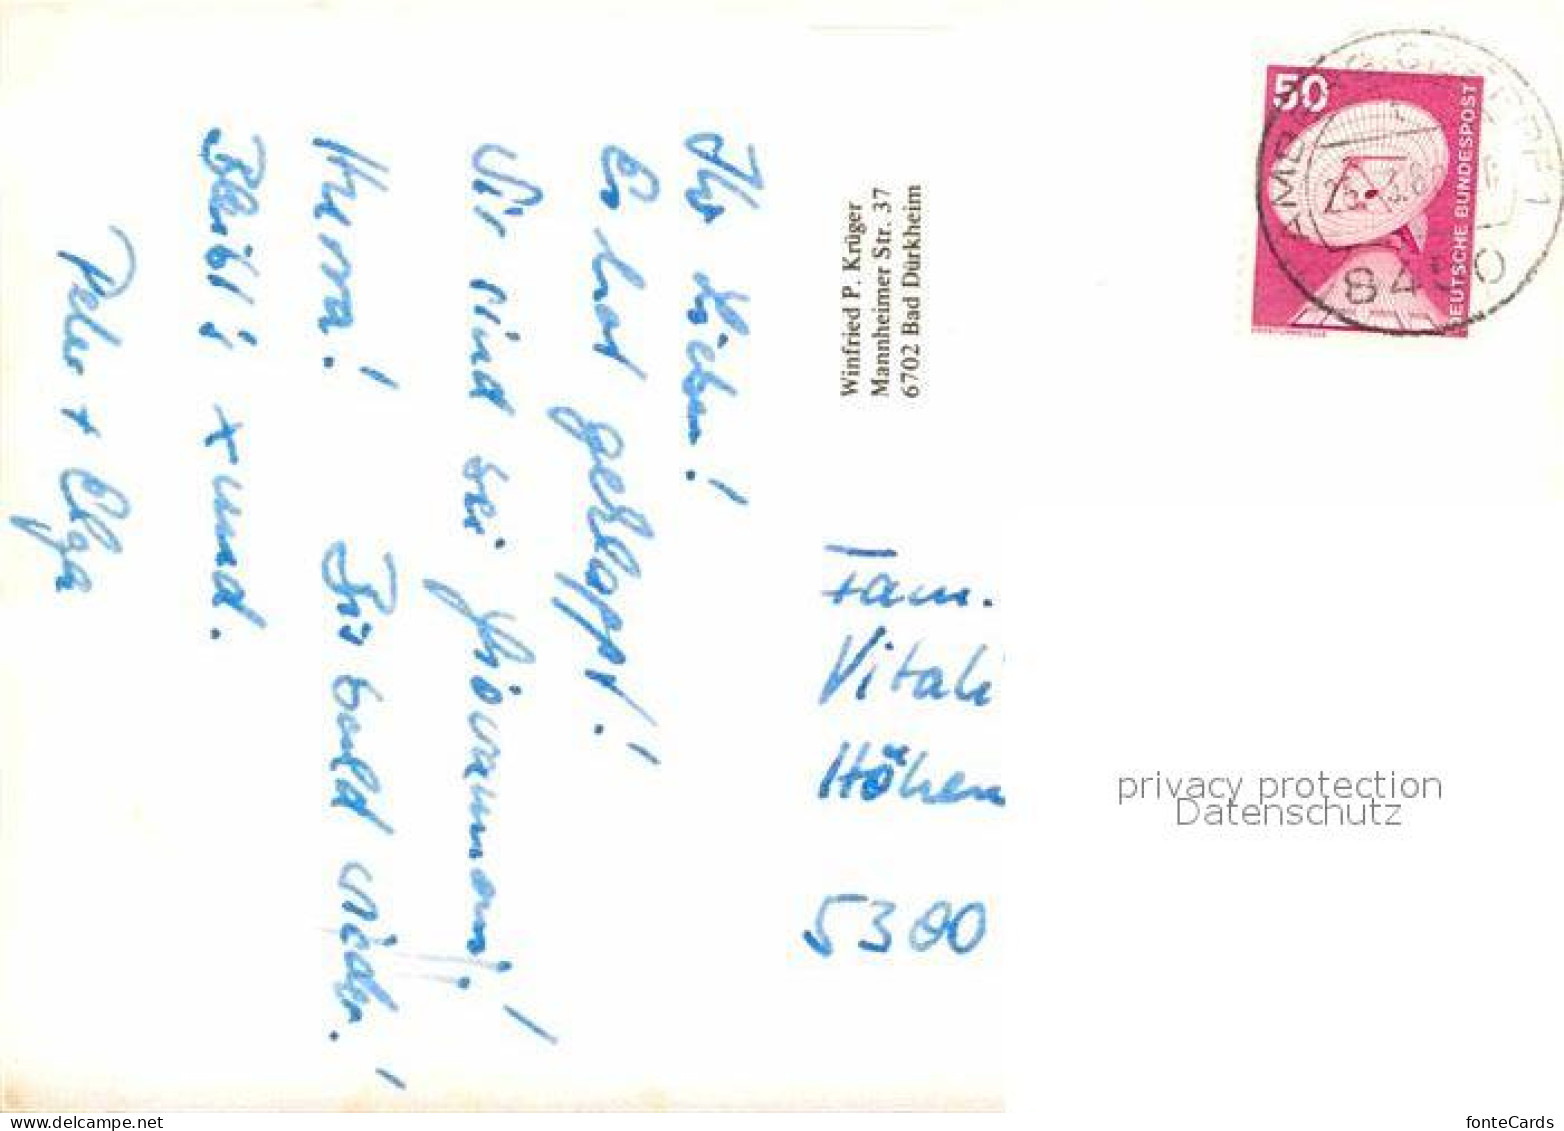 Ihr Lieben!
Es hat geklappt!
Wir sind bei Giovanni!
Hurra! Bis bald wieder!
Bleibt's xund.
Peter + Olga
Winfried P. Krüger
Mannheimer Str. 37
6702 Bad Dürkheim
50
DEUTSCHE BUNDESPOST
8450
AMBERG
Fam.
Vitali
Höhen
5300
privacy protection
Datenschutz
www.delcampe.net
fonteCards